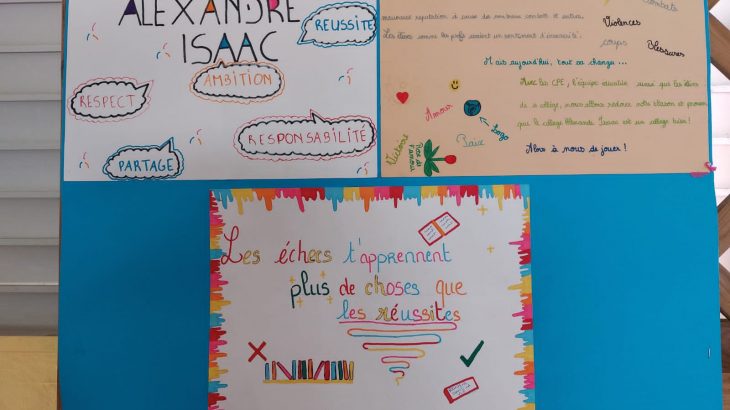 ALEXANDRE
ISAAC
RÉUSSITE
AMBITION
RESPECT
RESPONSABILITÉ
PARTAGE
mauvaise réputation à cause des nombreux combats et autres.
Les élèves comme les profs avaient un sentiment d'insécurité.
Combats
Violences
Coups
Blessures
Mais aujourd'hui, tout ça change...
Avec les CPE, l'équipe éducative ainsi que les élèves
de ce collège, nous allons redorer notre blason et prouver
que le collège Alexandre Isaac est un collège bien !
Alors à nous de jouer !
Amour
Paix
Victoire
Les échecs t'apprennent
plus de choses que
les réussites